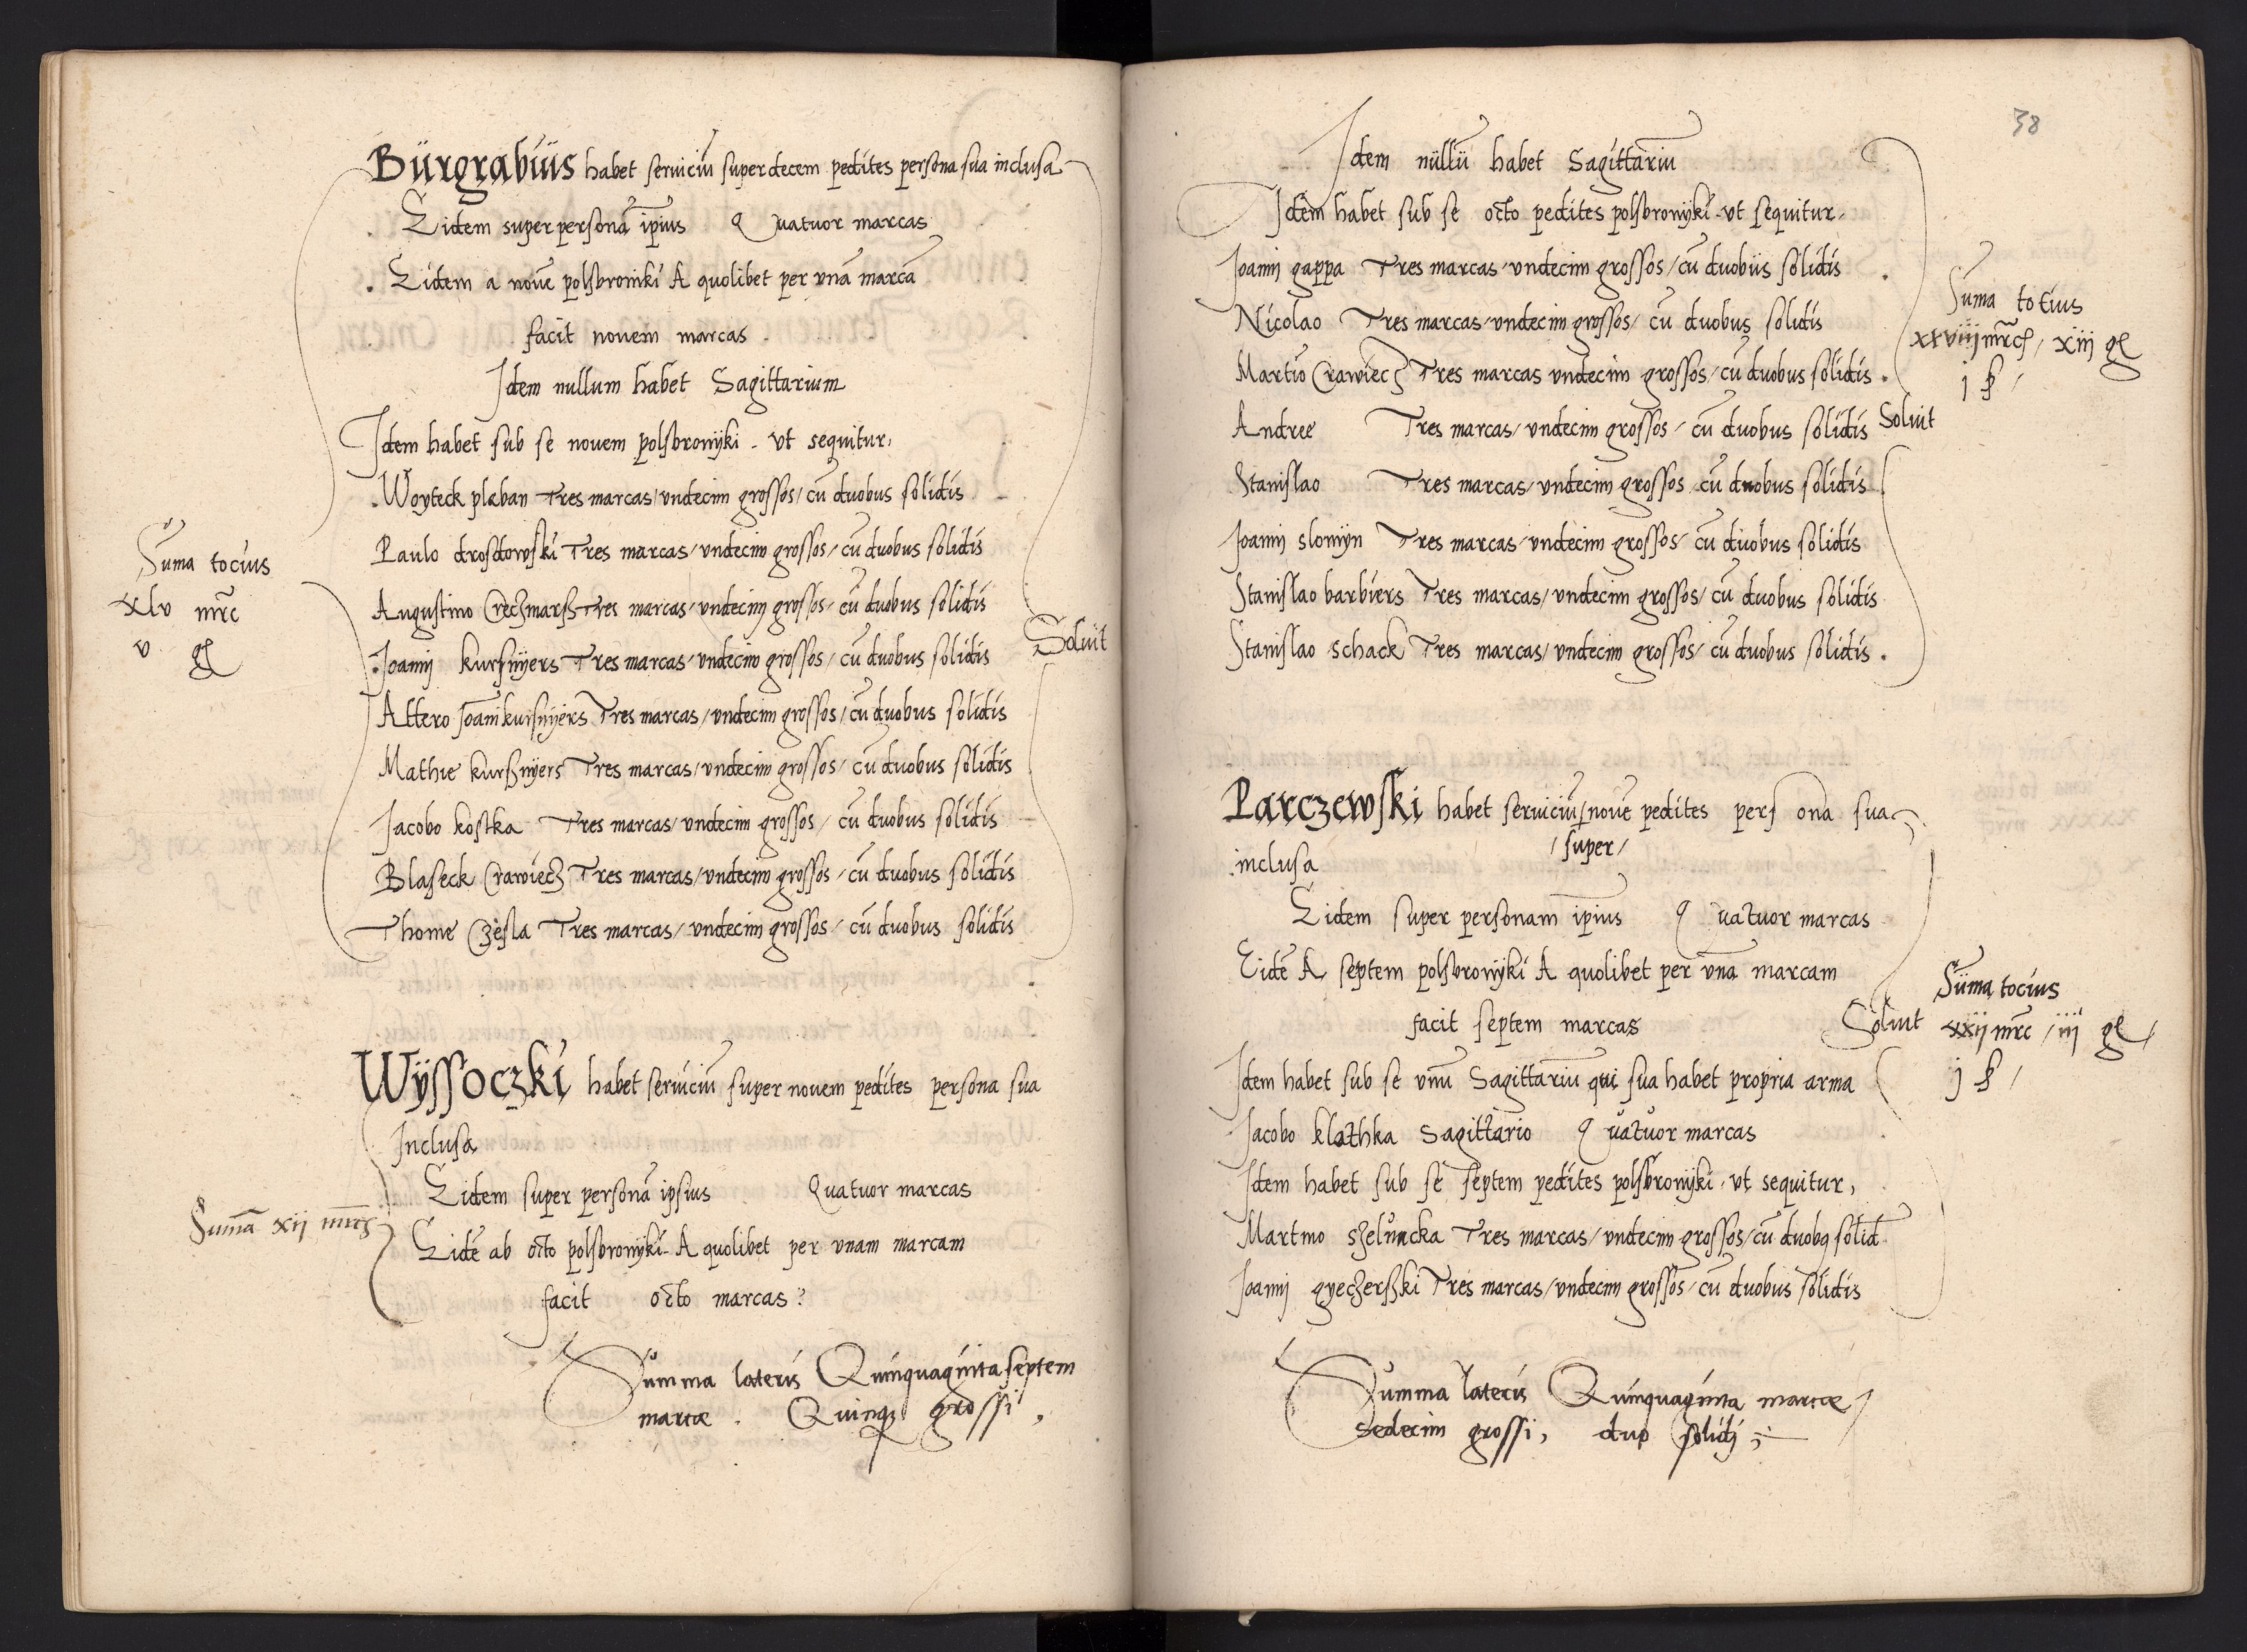 Bürgrabiüs habet seruiciū super decem pedites persona sua inclusa
Eidem super personā ip̄ius Quatuor marcas
Eidem a nouē polsbroniki A quolibet per vnā marcā
facit nouem marcas
Idem nullum habet Sagittarium
Idem habet sub se nouem polsbronÿki . vt sequitur,
Woyteck plæban Tres marcas/ vndecim grossos/ cū duobus solidis
Paulo drosdowski Tres marcas/ vndecim grossos/ cū duobus solidis
Augustino Crechmarß Tres marcas/ vndecim grossos/ cū duobus solidis
Joanni kurßnÿers Tres marcas/ vndecim grossos/ cū duobus solidis
Altero Joāni kursnÿers Tres marcas/ vndecim grossos/ cū duobus solidis
Mathie kurßnÿers Tres marcas/ vndecim grossos/ cū duobus solidis
Jacobo kostka Tres marcas/ vndecim grossos/ cū duobus solidis
Blaseck Crawiecz Tres marcas/ vndecim grossos/ cū duobus solidis
Thome Czesla Tres marcas/ vndecim grossos/ cū duobus solidis
Suma tocius
xlv mrc
v gl
Soluit
Wÿssoczki habet seruiciū super nouem pedites persona sua
Inclusa
Eidem super personā ipsius Quatuor marcas
Eidē ab octo polsbronÿki A quolibet per vnam marcam
facit octo marcas
Sumā xij mrc
Summa lateris Quinquaginta septem
marcæ . Quinq3 grossi ,
38
Idem nüllū habet Sagittariū
Idēm habet sub se octo pedites polsbronÿki vt sequitur
Joanni gappa Tres marcas/ vndecim grossos/ cū duobüs solidis
Nicolao Tres marcas/ vndecim grossos/ cū duobus solidis
Martīo Crawiecz Tres marcas vndecim grossos/ cū duobus solidis
Andree Tres marcas/ vndecim grossos/ cū duobus solidis
Stanislao Tres marcas/ vndecim grossos/ cū duobus solidis
Joanni slomÿn Tres marcas/ vndecim grossos/ cū duobus solidis
Stanislao barbiers Tres marcas/ vndecim grossos/ cū duobus solidis
Stanislao schack Tres marcas/ vndecim grossos/ cū duobus solidis .
Suma totius
xxviij mrc/ xiij gl
j ß /
Soluit
Parczewski habet seruiciū nouē pedites persona sua
/super/
inclusa
Eidem super personam ip̄ius Quatuor marcas
Eidē A septem polsbronÿki A quolibet per vnā marcam
facit septem marcas
Idem habet sub se vnū Sagittariū qui sua habet propria arma
Jacobo klathka Sagittario Quatuor marcas
Idem habet sub se septem pedites polsbronÿki vt sequitur,
Martino szeluncka Tres marcas/ vndecim grossos/ cū duobq solid
Joanni gyeczerßki Tres marcas/ vndecim grossos/ cū duobus solidis
Soluit
Süma tocius
xxij mrc /iij gl/
j ß /
Summa lateris Quinquaginta marcæ/
sedecim grossi, duo solidi